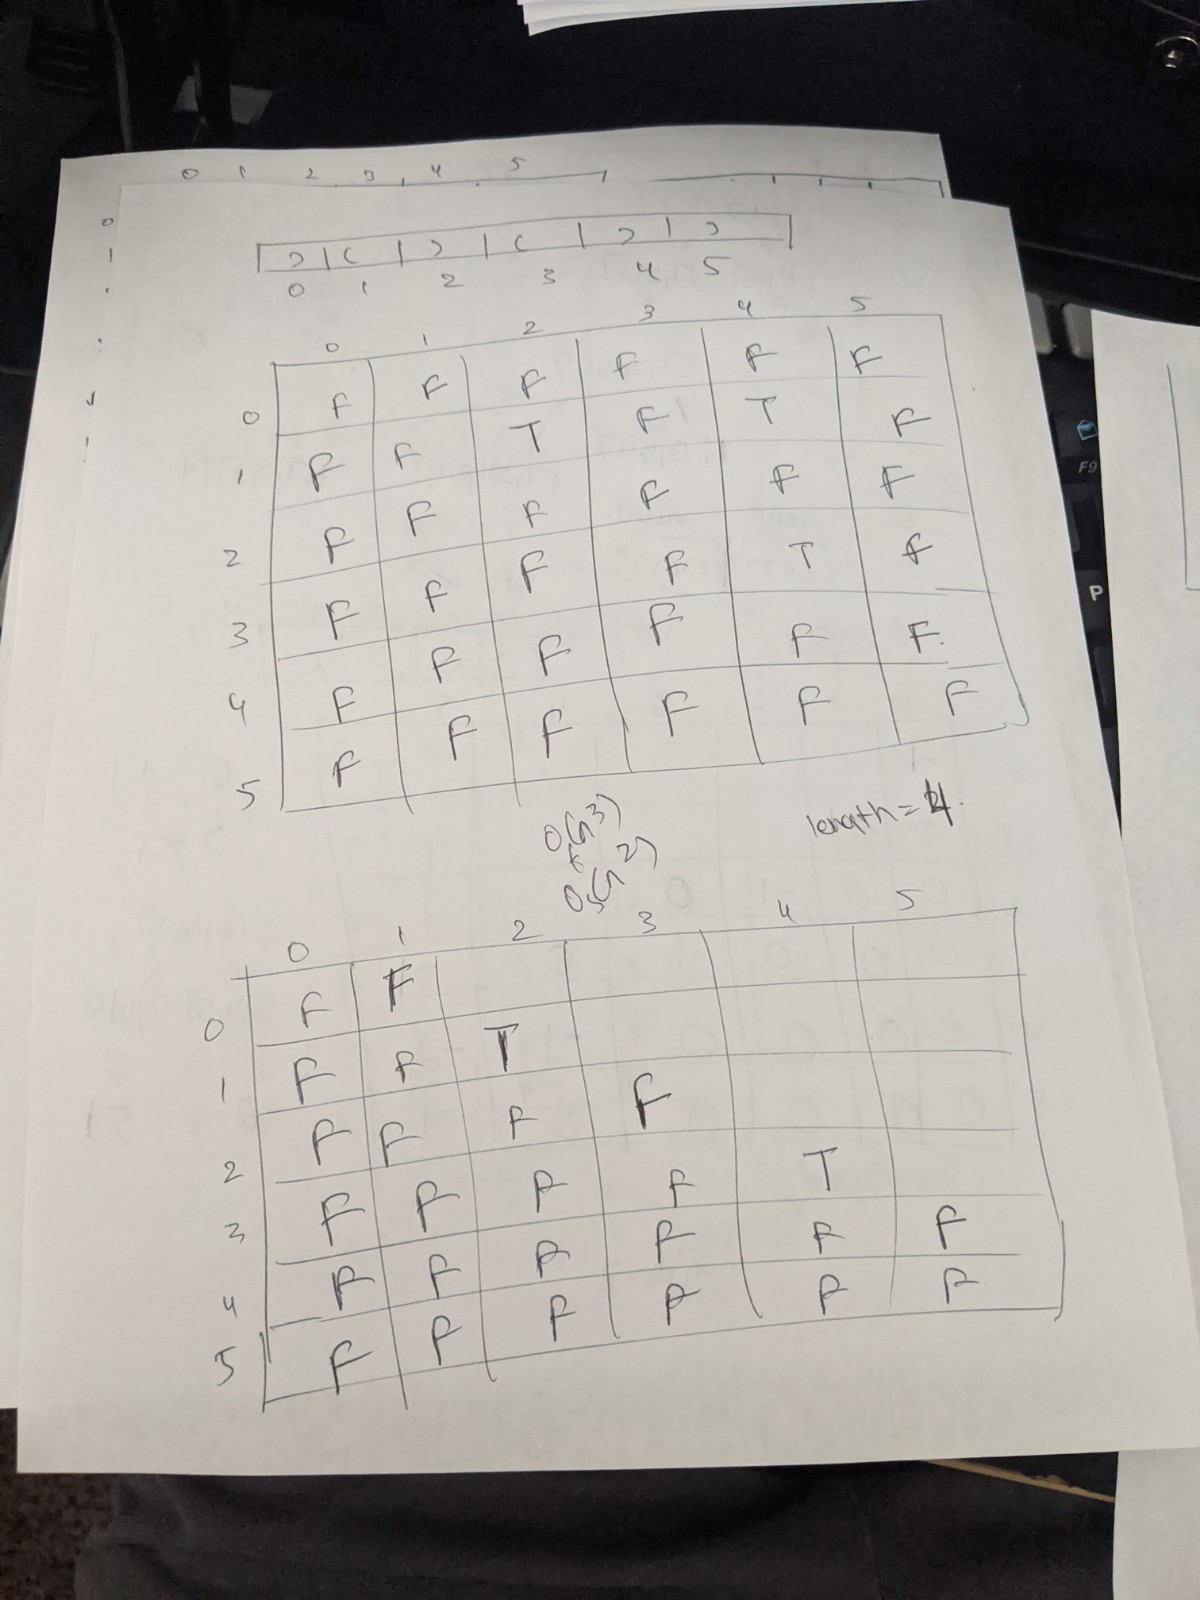 0 1 2 3 4 5
0
1
) | ( | ) | ( | ) | )
0 1 2 3 4 5
0 1 2 3 4 5
0 F F F F F F
1 F F T F T F
2 F F F F F F
3 F F F F T F
4 F F F F F F
5 F F F F F F
O(n3)
O(n2)
length = 4.
0 1 2 3 4 5
0 F F
1 F F T
2 F F F F
3 F F F F T
4 F F F F F F
5 F F F F F F
F9
P